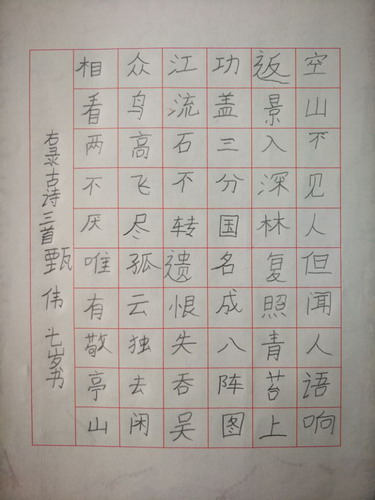 空山不见人但闻人语响
返景入深林复照青苔上
功盖三分国名成八阵图
江流石不转遗恨失吞吴
众鸟高飞尽孤云独去闲
相看两不厌唯有敬亭山
右录古诗三首甄伟七岁书